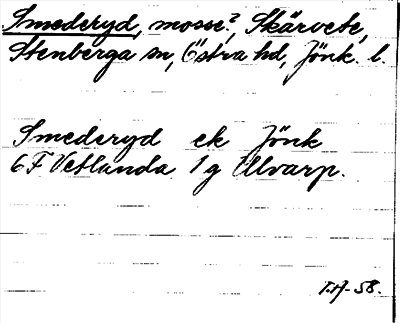 Smederyd, mosse?, Skärvete,
Stenberga sn, Östra hd, Jönk. l.
Smederyd ek Jönk
6F Vetlanda 1g Ulvarp.
T.A-58.